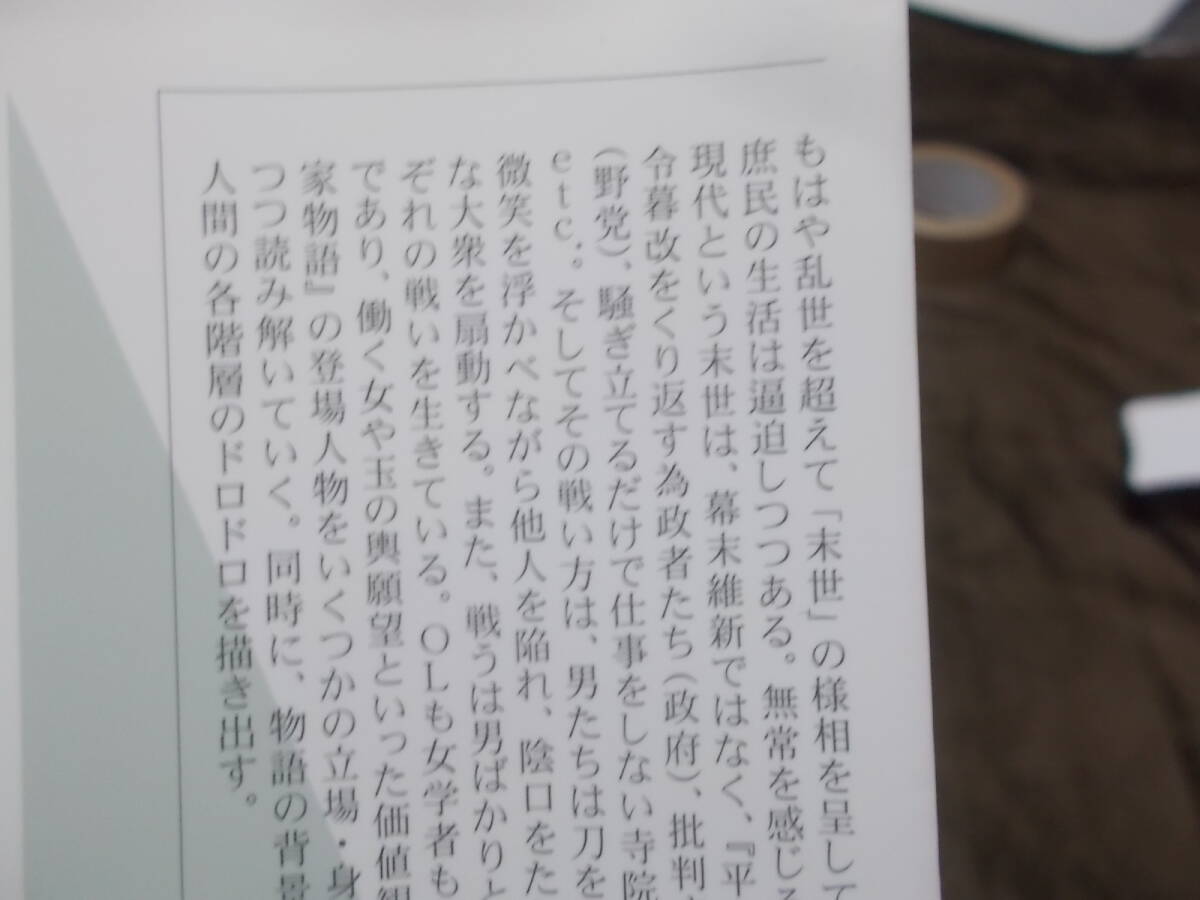 もはや乱世を超えて「末世」の様相を呈して
庶民の生活は逼迫しつつある。無常を感じる
現代という末世は、幕末維新ではなく、『平
令暮改をくり返す為政者たち(政府)、批判
(野党)、騒ぎ立てるだけで仕事をしない寺院
etc.。そしてその戦い方は、男たちは刀を
微笑を浮かべながら他人を陥れ、陰口をた
な大衆を扇動する。また、戦うは男ばかりと
ぞれの戦いを生きている。OLも女学者も
であり、働く女や玉の輿願望といった価値観
家物語』の登場人物をいくつかの立場・身
つつ読み解いていく。同時に、物語の背景
人間の各階層のドロドロを描き出す。